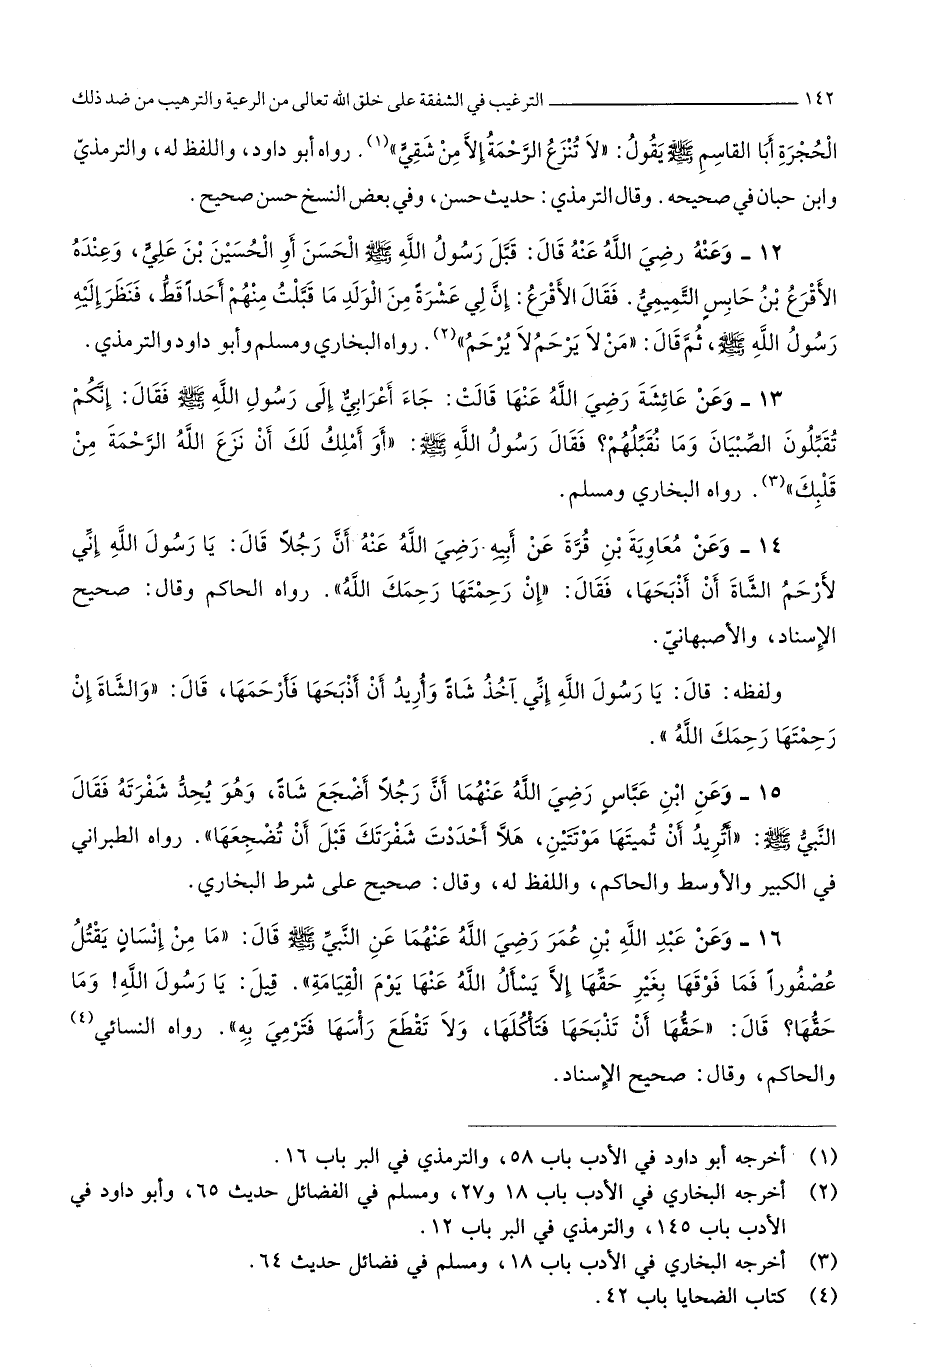 ١٤٢ ــــــــــ الترغيب في الشفقة على خلق الله تعالى من الرعية والترهيب من ضد ذلك
الْحُجْرَةِ أَبَا القاسِمِ ﷺ يَقُولُ: «لاَ تُنْزَعُ الرَّحْمَةُ إِلاَّ مِنْ شَقِيٍّ»(١). رواه أبو داود، واللفظ له، والترمذيّ
وابن حبان في صحيحه. وقال الترمذي: حديث حسن، وفي بعض النسخ حسن صحيح.
١٢ ـ وَعَنْهُ رضِيَ اللَّهُ عَنْهُ قَالَ: قَبَّلَ رَسُولُ اللَّهِ ﷺ الْحَسَنَ أَوِ الْحُسَيْنَ بْنَ عَلِيٍّ، وَعِنْدَهُ
الأَقْرَعُ بْنُ حَابِسٍ التَّمِيمِيُّ. فَقَالَ الأَقْرَعُ: إِنَّ لِي عَشْرَةً مِنَ الْوَلَدِ مَا قَبَّلْتُ مِنْهُمْ أَحَداً قَطُّ، فَنَظَرَ إِلَيْهِ
رَسُولُ اللَّهِ ﷺ، ثُمَّ قَالَ: «مَنْ لاَ يَرْحَمُ لاَ يُرْحَمُ»(٢). رواه البخاري ومسلم وأبو داود والترمذي.
١٣ ـ وَعَنْ عَائِشَةَ رَضِيَ اللَّهُ عَنْهَا قَالَتْ: جَاءَ أَعْرَابِيٌّ إِلَى رَسُولِ اللَّهِ ﷺ فَقَالَ: إِنَّكُمْ
تُقَبِّلُونَ الصِّبْيَانَ وَمَا نُقَبِّلُهُمْ؟ فَقَالَ رَسُولُ اللَّهِ ﷺ: «أَوَ أَمْلِكُ لَكَ أَنْ نَزَعَ اللَّهُ الرَّحْمَةَ مِنْ
قَلْبِكَ»(٣). رواه البخاري ومسلم.
١٤ ـ وَعَنْ مُعَاوِيَةَ بْنِ قُرَّةَ عَنْ أَبِيهِ رَضِيَ اللَّهُ عَنْهُ أَنَّ رَجُلاً قَالَ: يَا رَسُولَ اللَّهِ إِنِّي
لأَرْحَمُ الشَّاةَ أَنْ أَذْبَحَهَا، فَقَالَ: «إِنْ رَحِمْتَهَا رَحِمَكَ اللَّهُ». رواه الحاكم وقال: صحيح
الإسناد، والأصبهانيّ.
ولفظه: قالَ: يَا رَسُولَ اللَّهِ إِنِّي آخُذُ شَاةً وَأُرِيدُ أَنْ أَذْبَحَهَا فَأَرْحَمَهَا، قَالَ: «وَالشَّاةَ إِنْ
رَحِمْتَهَا رَحِمَكَ اللَّهُ».
١٥ ـ وَعَنِ ابْنِ عَبَّاسٍ رَضِيَ اللَّهُ عَنْهُمَا أَنَّ رَجُلاً أَضْجَعَ شَاةً، وَهُوَ يُحِدُّ شَفْرَتَهُ فَقَالَ
النَّبِيُّ ﷺ: «أَتُرِيدُ أَنْ تُمِيتَهَا مَوْتَتَيْنِ، هَلاَّ أَحْدَدْتَ شَفْرَتَكَ قَبْلَ أَنْ تُضْجِعَهَا». رواه الطبراني
في الكبير والأوسط والحاكم، واللفظ له، وقال: صحيح على شرط البخاري.
١٦ ـ وَعَنْ عَبْدِ اللَّهِ بْنِ عُمَرَ رَضِيَ اللَّهُ عَنْهُمَا عَنِ النَّبِيِّ ﷺ قَالَ: «مَا مِنْ إِنْسَانٍ يَقْتُلُ
عُصْفُوراً فَمَا فَوْقَهَا بِغَيْرِ حَقِّهَا إِلاَّ يَسْأَلُ اللَّهُ عَنْهَا يَوْمَ الْقِيَامَةِ». قِيلَ: يَا رَسُولَ اللَّهِ! وَمَا
حَقُّهَا؟ قَالَ: «حَقُّهَا أَنْ تَذْبَحَهَا فَتَأْكُلَهَا، وَلاَ تَقْطَعَ رَأْسَهَا فَتَرْمِيَ بِهِ». رواه النسائي(٤)
والحاكم، وقال: صحيح الإسناد.
(١) أخرجه أبو داود في الأدب باب ٥٨، والترمذي في البر باب ١٦.
(٢) أخرجه البخاري في الأدب باب ١٨ و٢٧، ومسلم في الفضائل حديث ٦٥، وأبو داود في
الأدب باب ١٤٥، والترمذي في البر باب ١٢.
(٣) أخرجه البخاري في الأدب باب ١٨، ومسلم في فضائل حديث ٦٤.
(٤) كتاب الضحايا باب ٤٢.